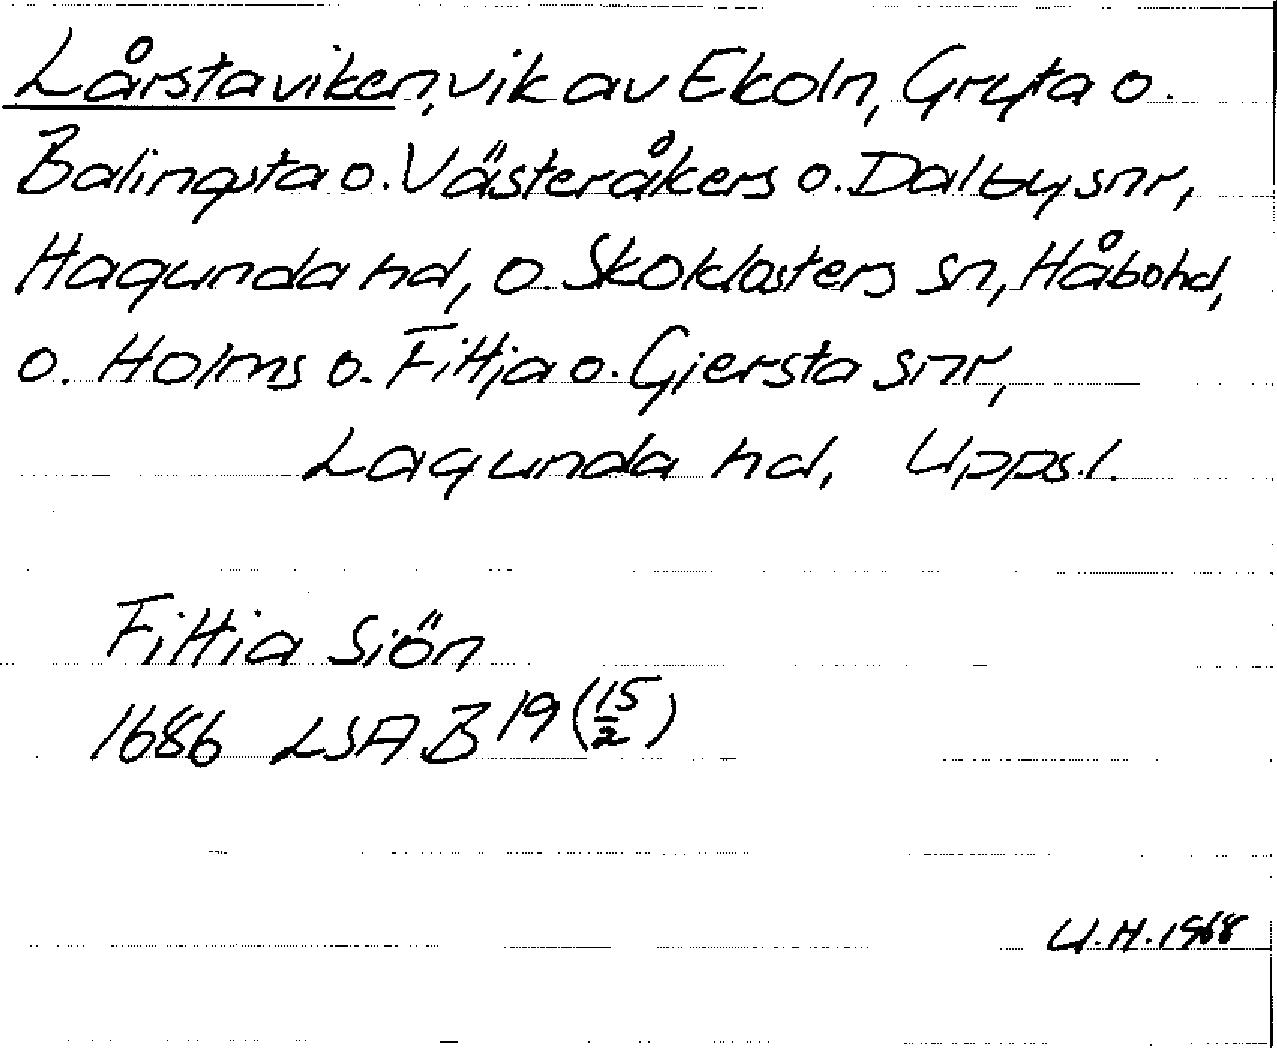 Lårstaviken, vik av Ekoln, Gryta o.
Balingsta o. Västeråkers o. Dalby snr,
Hagunda hd, o. Skoklosters sn, Håbo hd,
o. Holms o. Fittja o. Giersta snr,
Lagunda hd, Upps.l.
Fittia Siön
1686 LSA B 19 (15/2)
U.H. 1968